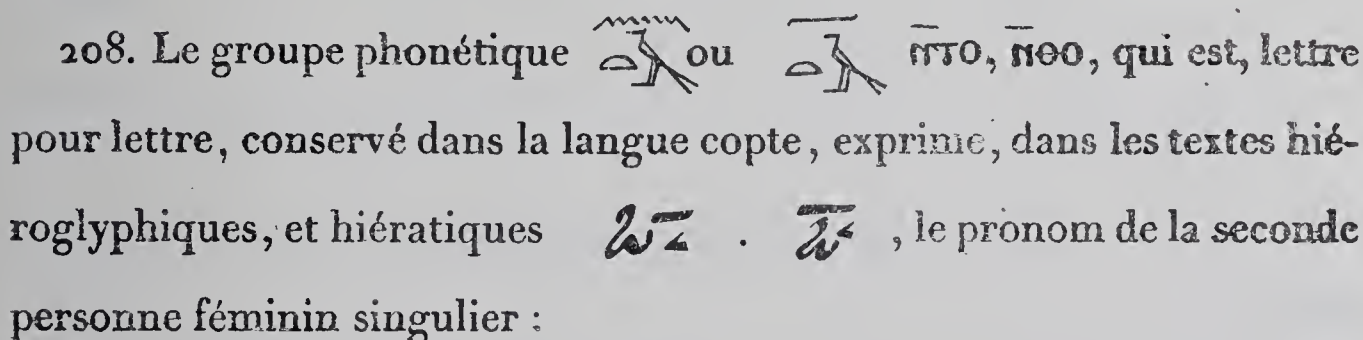 208. Le groupe phonétique 𓈖𓏏𓅱 ou 𓏏𓅱 ⲛ̄ⲧⲟ, ⲛ̄ⲑⲟ, qui est, lettre
pour lettre, conservé dans la langue copte, exprime, dans les textes hié-
roglyphiques, et hiératiques . , le pronom de la seconde
personne féminin singulier :